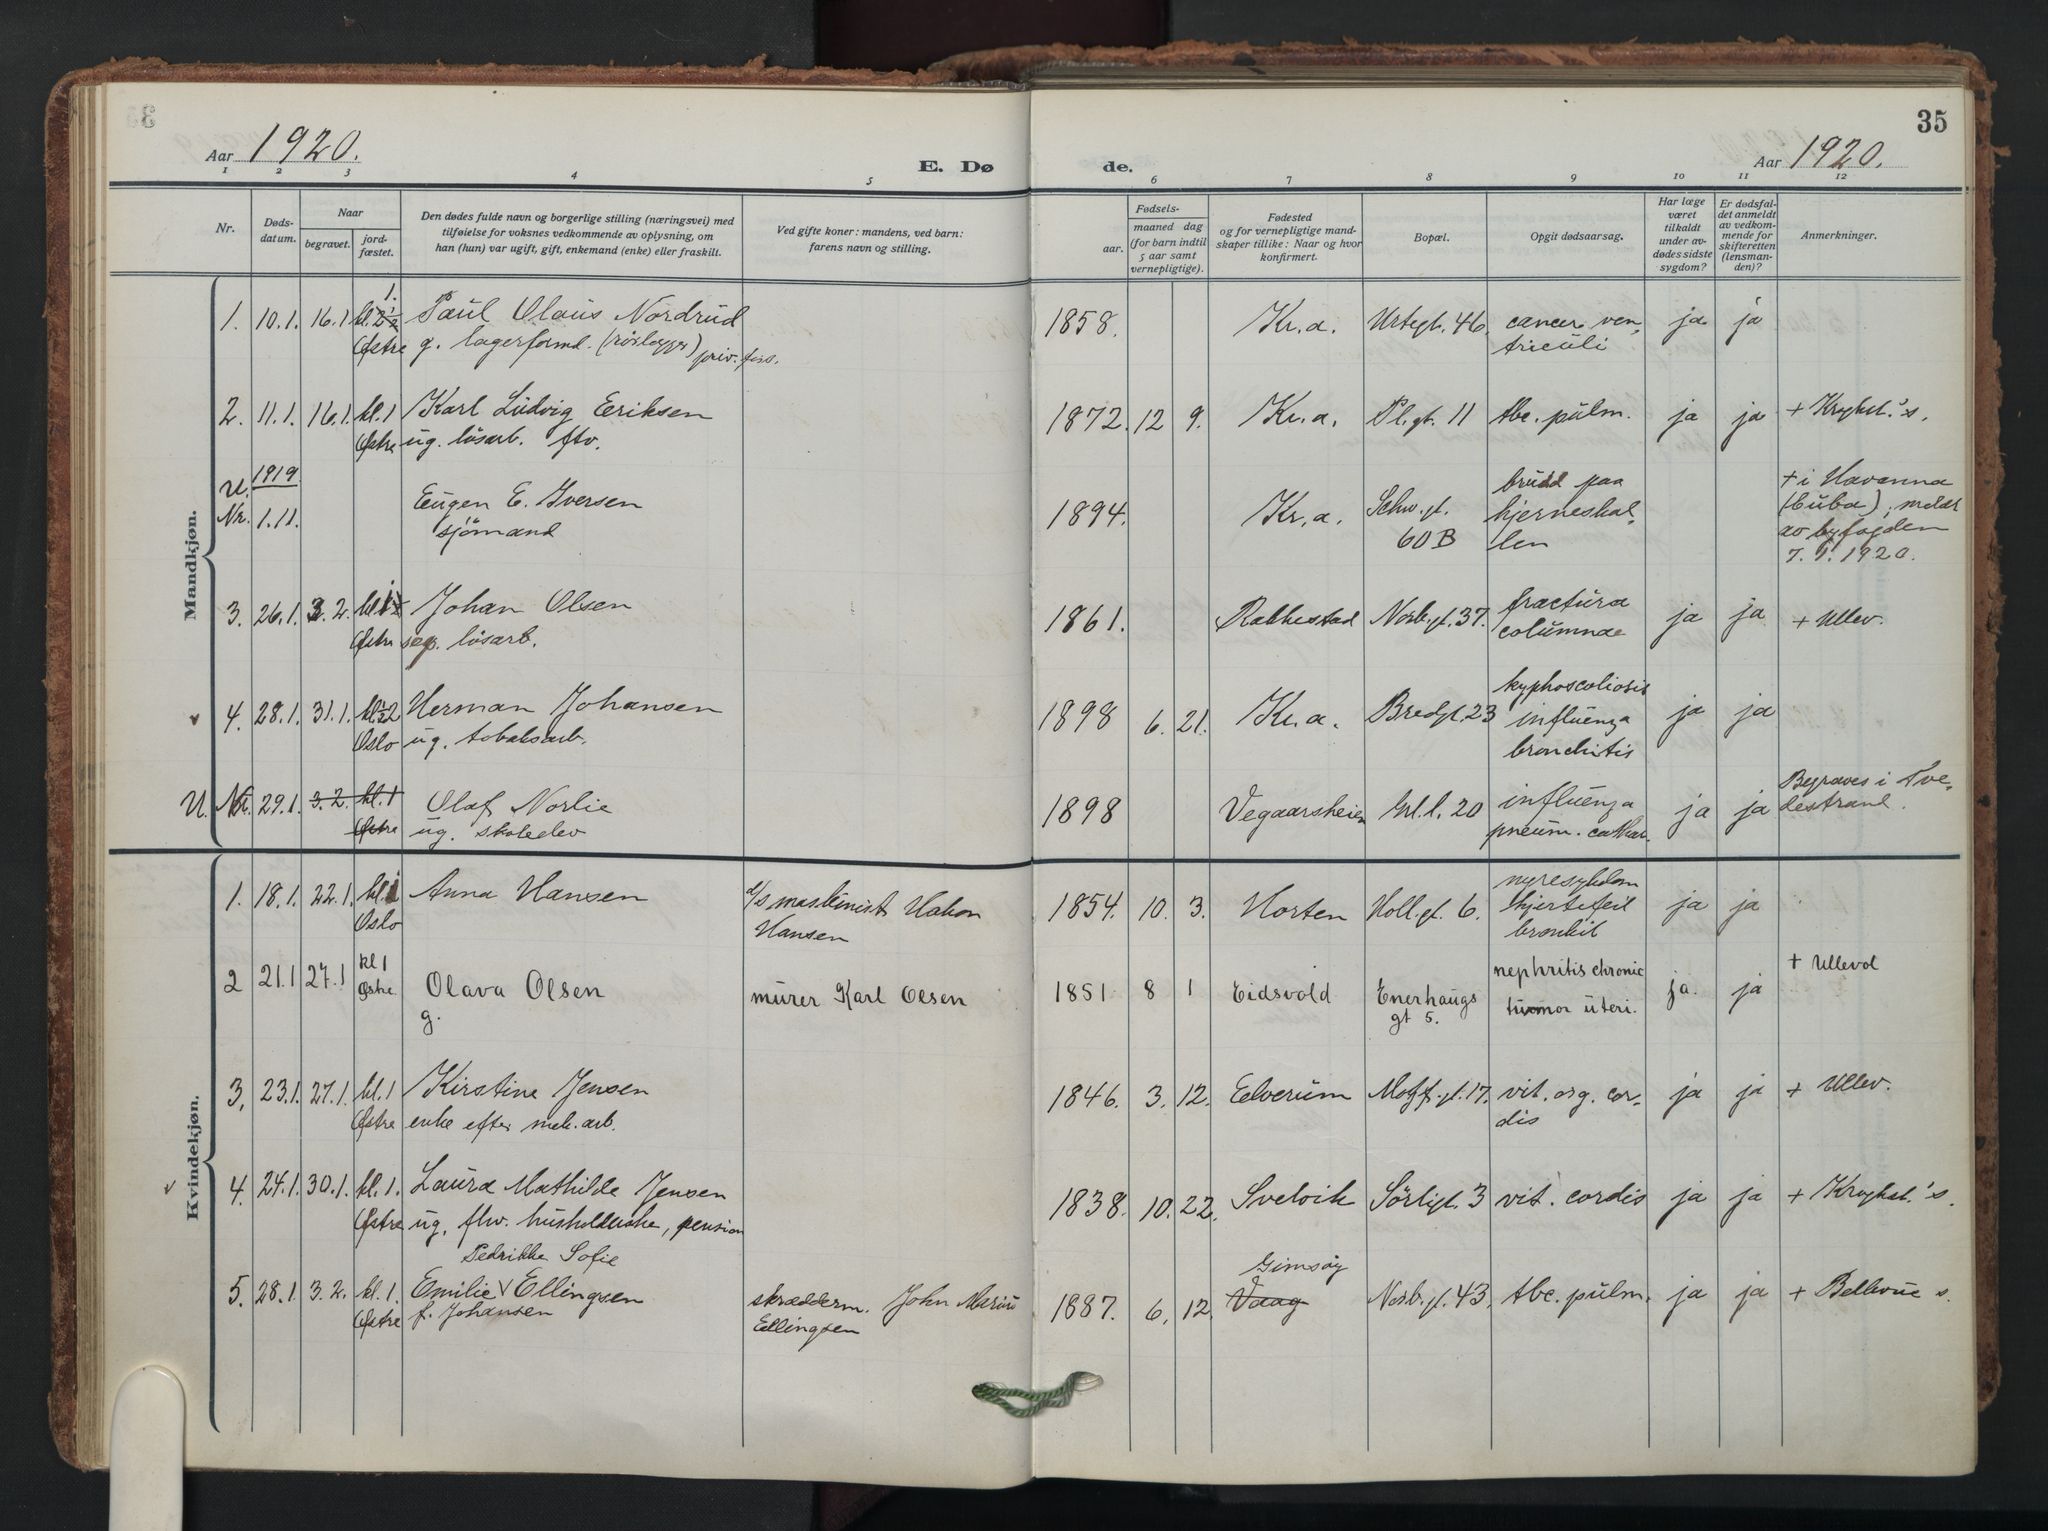 35
Aar 1920.
E. Dø de.
Aar 1920.
1 2 3 4 5 6 7 8 9 10 11 12
Nr.
Døds-
datum.
Naar
begravet.
jord-
fæstet.
Den dødes fulde navn og borgerlige stilling (næringsvei) med
tilføielse for voksnes vedkommende av oplysning, om
han (hun) var ugift, gift, enkemand (enke) eller fraskilt.
Ved gifte koner: mandens, ved barn:
farens navn og stilling.
Fødsels-
aar.
maaned dag
(for barn indtil
5 aar samt
vernepligtige).
Fødested
og for vernepligtige mand-
skaper tillike: Naar og hvor
konfirmert.
Bopæl.
Opgit dødsaarsag.
Har læge
været
tilkaldt
under av-
dødes sidste
sygdom?
Er dødsfal-
det anmeldt
av vedkom-
mende for
skifteretten
(lensman-
den)?
Anmerkninger.
Mandkjøn.
1. 10.1. 16.1 kl. 2½ 1. Paul Olaus Nordrud 1858. Kr.a. Urtegt. 46. cancer ven- ja ja
Østre g. lagerformd. (rørlegger) priv. fors. triculi
2. 11.1. 16.1. kl. 1 Karl Ludvig Eriksen 1872. 12 9. Kr.a. Pl.gt. 11 tbc. pulm. ja ja + Krohst.'s.
Østre ug. løsarb. ftv.
U. 1919 brudd paa + i Havanna
Nr. 1.11. Eugen E. Iversen 1894. Kr.a. Schw.gt. hjerneskal- (Cuba), meldt
sjømand 60 B len av byfogden
7.1.1920.
3. 26.1. 3.2. kl. 1 Johan Olsen 1861. Rakkestad Norb.gt. 37. fractura ja ja + Ullev.
Østre sep. løsarb. columnae
4. 28.1. 31.1. kl. 12 Herman Johansen 1898 6. 21. Kr.a. Bredgt. 23 kyphoscoliosis ja ja
Oslo ug. tobaksarb. influenza
bronchitis
U. Nr. 29.1. 3.2. kl. 1 Olaf Norlie 1898 Vegaarsheien Grl.l. 20 influenza ja ja Begraves i Tve-
Østre ug. skoleelev pneum. cathar. destrand.
Kvindekjøn.
1. 18.1. 22.1. kl. 1 Anna Hansen d/s maskinist Hakon 1854. 10. 3. Horten Holl.gt. 6. nyresykdom ja ja
Oslo Hansen hjertefeil
bronkit
2 21.1 27.1 kl 1 Olava Olsen murer Karl Olsen 1851 8 1 Eidsvold Enerhaugs nephritis chronic ja. ja + Ullevol
Østre g. gt 5. tumor uteri.
3. 23.1. 27.1. kl. 1 Kirstine Jensen 1846. 3. 12. Elverum Motzf.gt. 17. vit. org. cor- ja ja + Ullev.
Østre enke efter mek. arb. dis
4. 24.1. 30.1. kl. 1. Laura Mathilde Jensen 1838. 10. 22. Svelvik Sörligt. 3 vit. cordis ja ja + Krohst.'s.
Østre ug. fhv. husholderske, pension
Pedrikke Sofie Gimsøy
5. 28.1. 3.2. kl. 1. Emilie V Ellingsen skrædderm. John 1887. 6. 12. Vaag Norb.gt. 43. tbc. pulm. ja ja + Bellevue s.
Østre f. Johansen Ellingsen